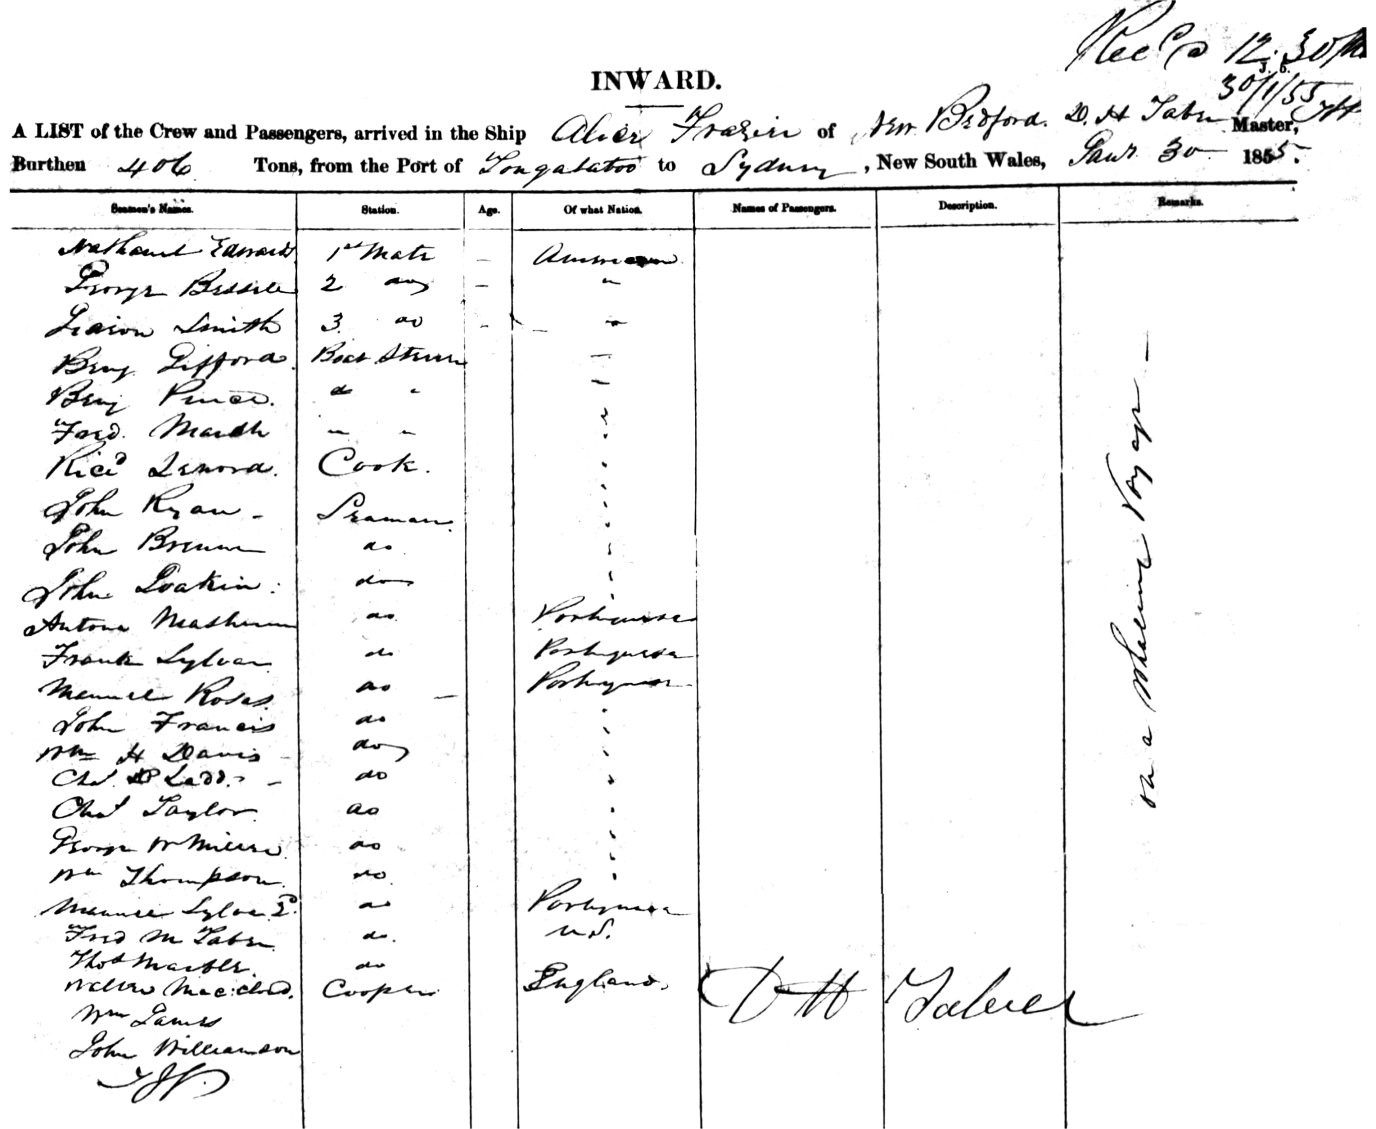 Rec'd 12.30 PM
30/1/55
INWARD.
A LIST of the Crew and Passengers, arrived in the Ship Alice Frazier of New Bedford. D. H Taber Master,
Burthen 406 Tons, from the Port of Tongataboo to Sydney, New South Wales, Jany 30 1855.
Seamen's Names. Station. Age. Of what Nation. Names of Passengers. Description. Remarks.
Nathaniel Edwards 1st Mate – American
George 2 do – "
Smith 3 do – "
Benj Gifford. Boat Steerer "
Benj Pierce. do " "
Fred. March " " "
Ricd Lenora. Cook. "
John Ryan – Seaman "
John do "
John Joakin: do "
Antone do Portuguese
Frank Sylvia do Portuguese
Manuel Rosas do – Portuguese
John Francis do "
Wm H Davis – do "
Chas D Ladd. – do "
Chas Taylor do "
George W do "
Wm Thompson. do "
Manuel Sylva 2d do Portuguese
Fred M Taber do. U.S.
Thos Marble. do
Mac:cloud. Cooper England.
Wm James
John Williamson
on a Whaling Voyage –
D H Taber